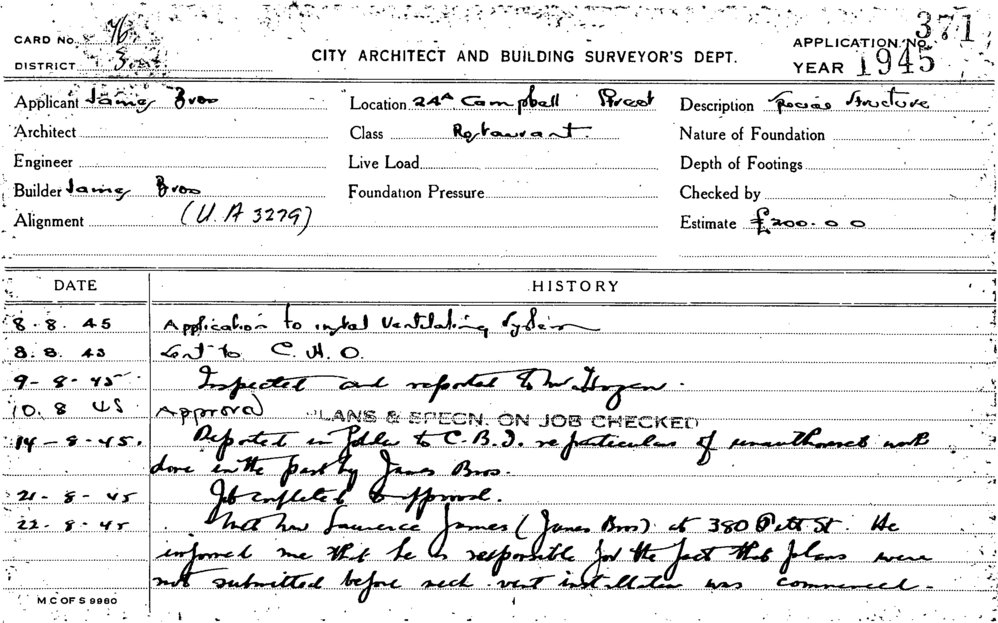 CARD No. 76
DISTRICT
CITY ARCHITECT AND BUILDING SURVEYOR'S DEPT.
APPLICATION No. 371
YEAR 1945
Applicant James Bros
Location 24A Campbell Street
Description Special Structure
Architect
Class Restaurant
Nature of Foundation
Engineer
Live Load
Depth of Footings
Builder James Bros
Foundation Pressure
Checked by
Alignment (U.A 3279)
Estimate £200.0 0
DATE HISTORY
8.8.45 Application to instal Ventilating System
8.8.45 Sent to C.H.O.
9-8-45 Inspected and reported to Mr
10.8 45 Approval PLANS & SPECN. ON JOB CHECKED
14-8-45. Reported in folder to C.B.I. re particulars of unauthorised work
done in the past by James Bros.
21-8-45 Job completed to approval.
22-8-45 Met Mr Laurence James (James Bros) at 380 Pitt St. He
informed me that he is responsible for the fact that plans were
not submitted before mech. vent installation was commenced.
M.C OF S 9980